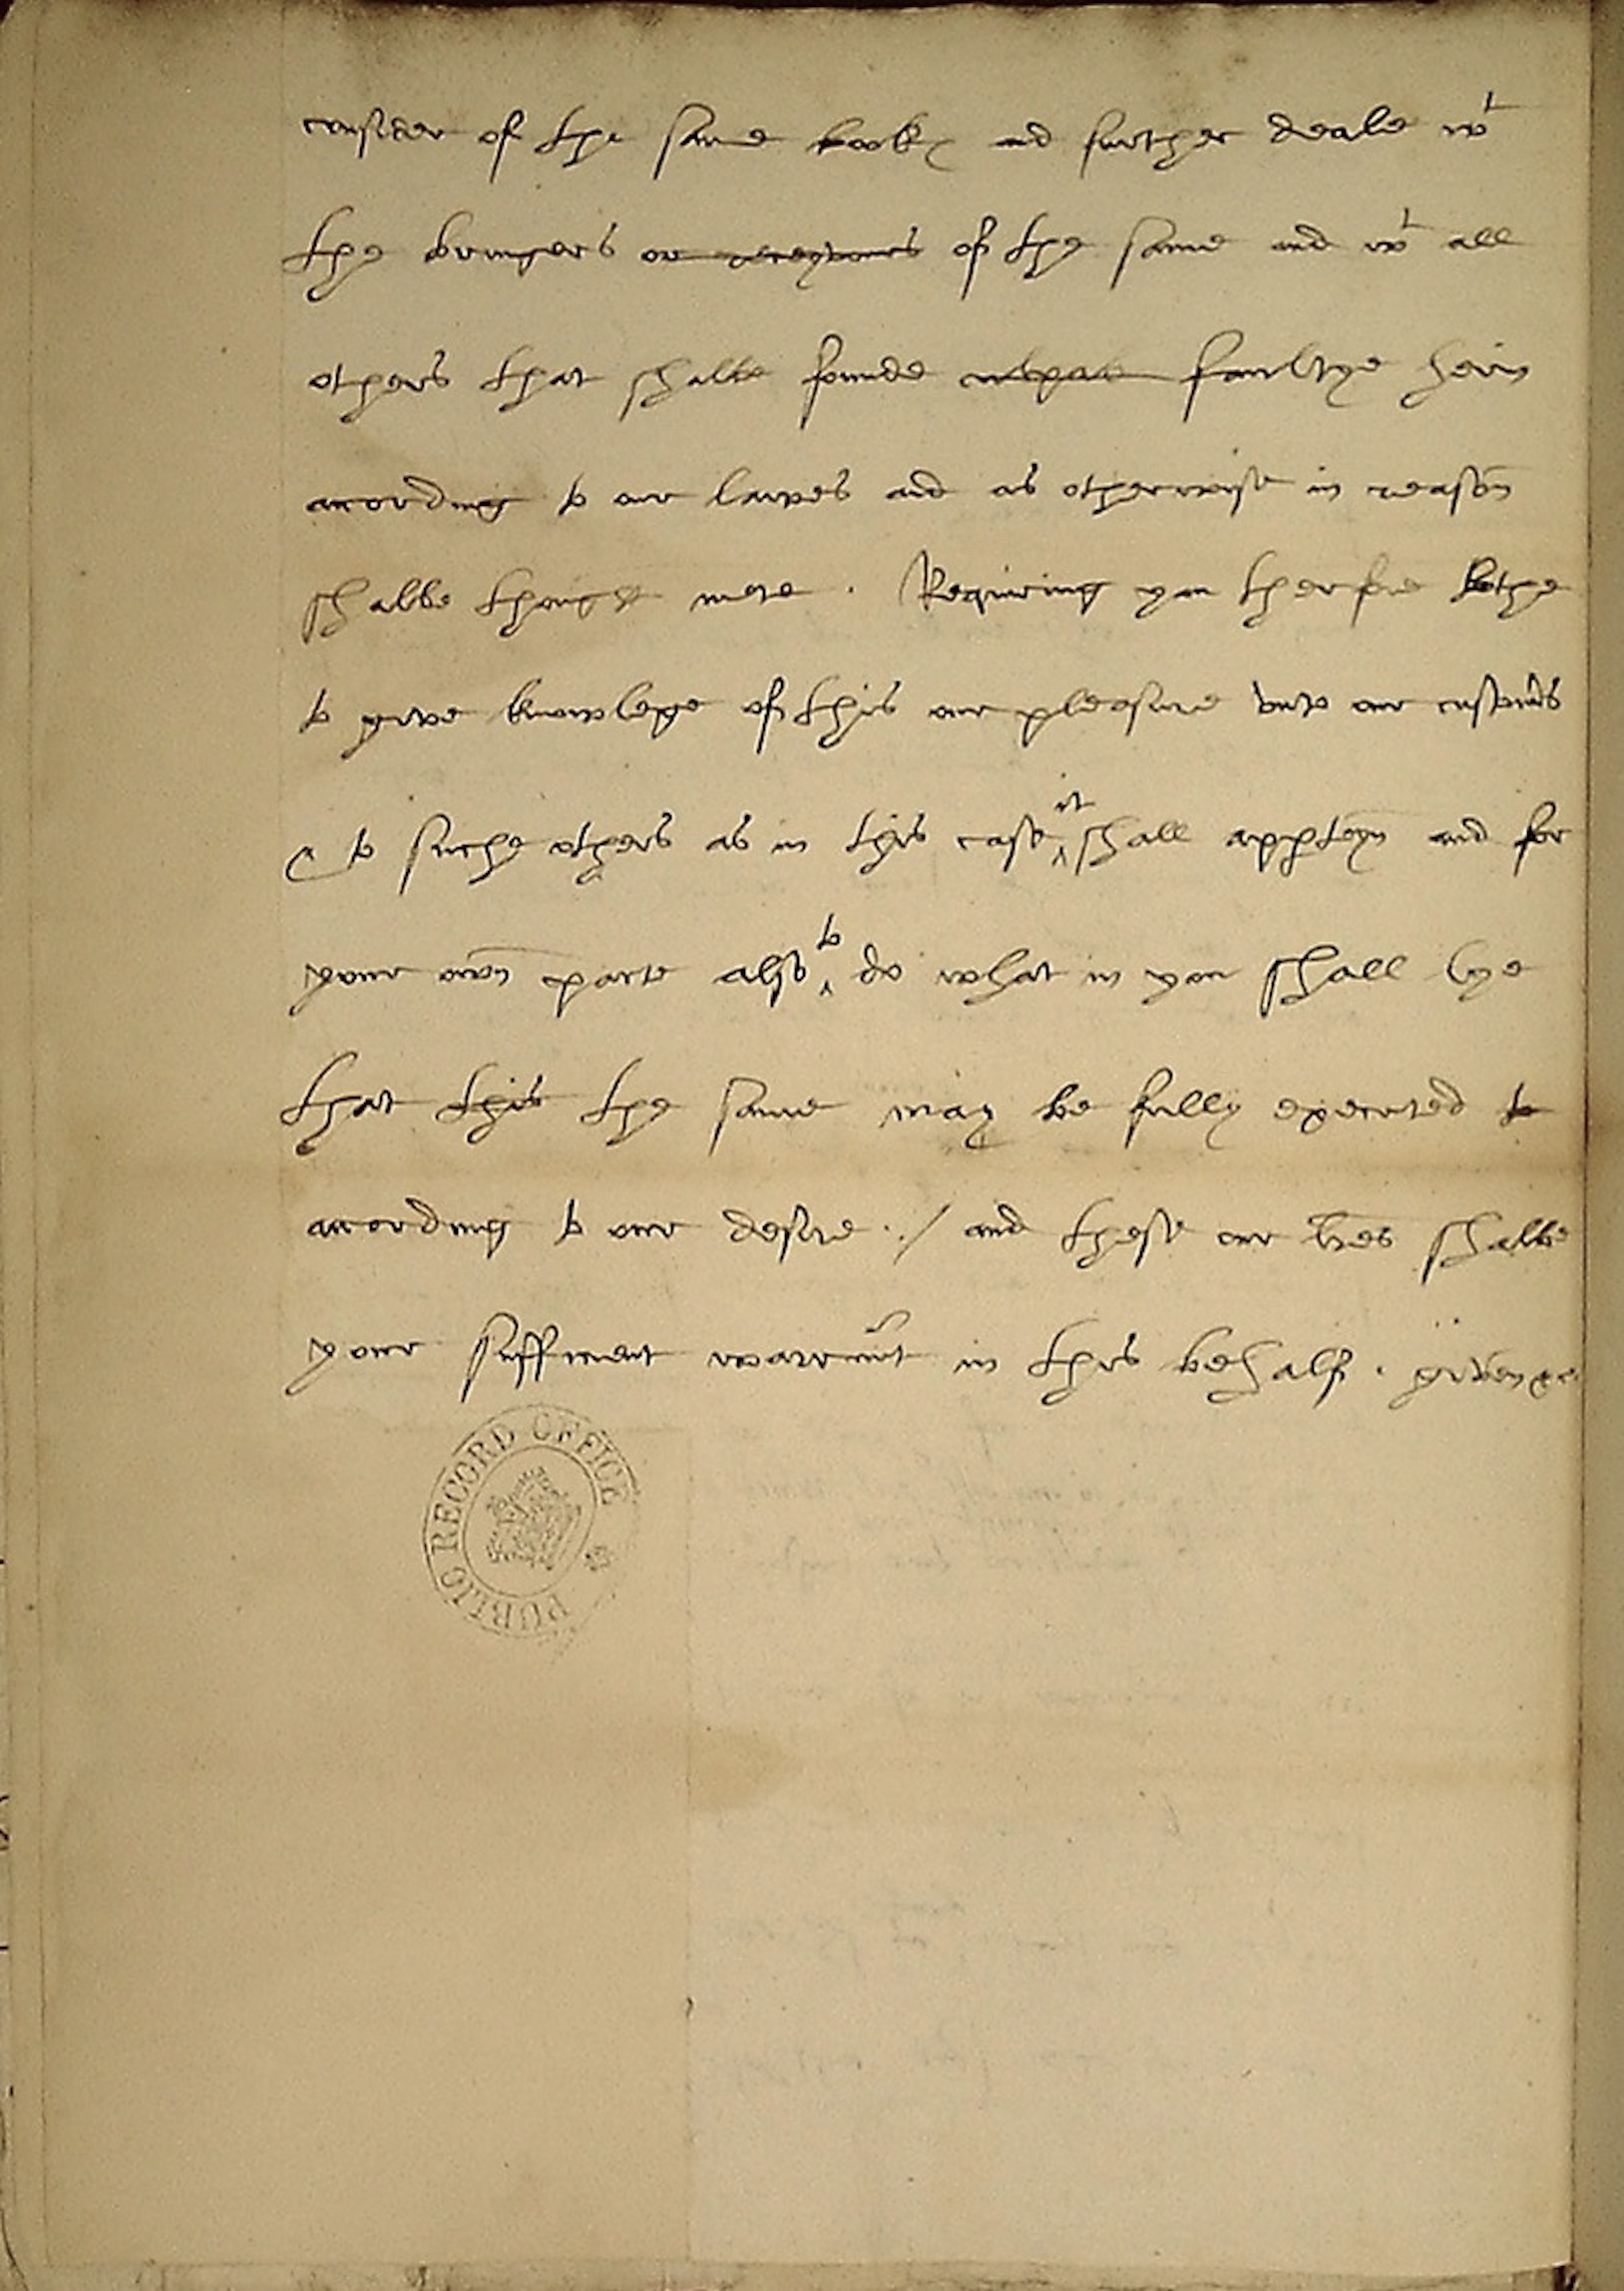 consider of the same book and further deale wt
the bringers or receyvors of the same and wt all
others that shalbe founde culpab faultye herin
according to our lawes and as otherwise in reason
shalbe thought mete . Requiring you therfore bothe
to gyve knowlege of this our pleasure vnto our custom's
& to suche others as in this case it shall apperteyn and for
your own parte also to do what in you shall lye
that this the same may be fully executed to
according to our desire ./ and these our lres shalbe
your sufficient warraunt in this behalf . given &c
PUBLIC RECORD OFFICE